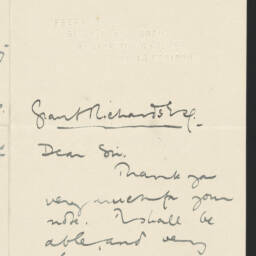 Grant Richards Esq.
Dear Sir.
Thank you
very much for your
note. I shall be
able, and very